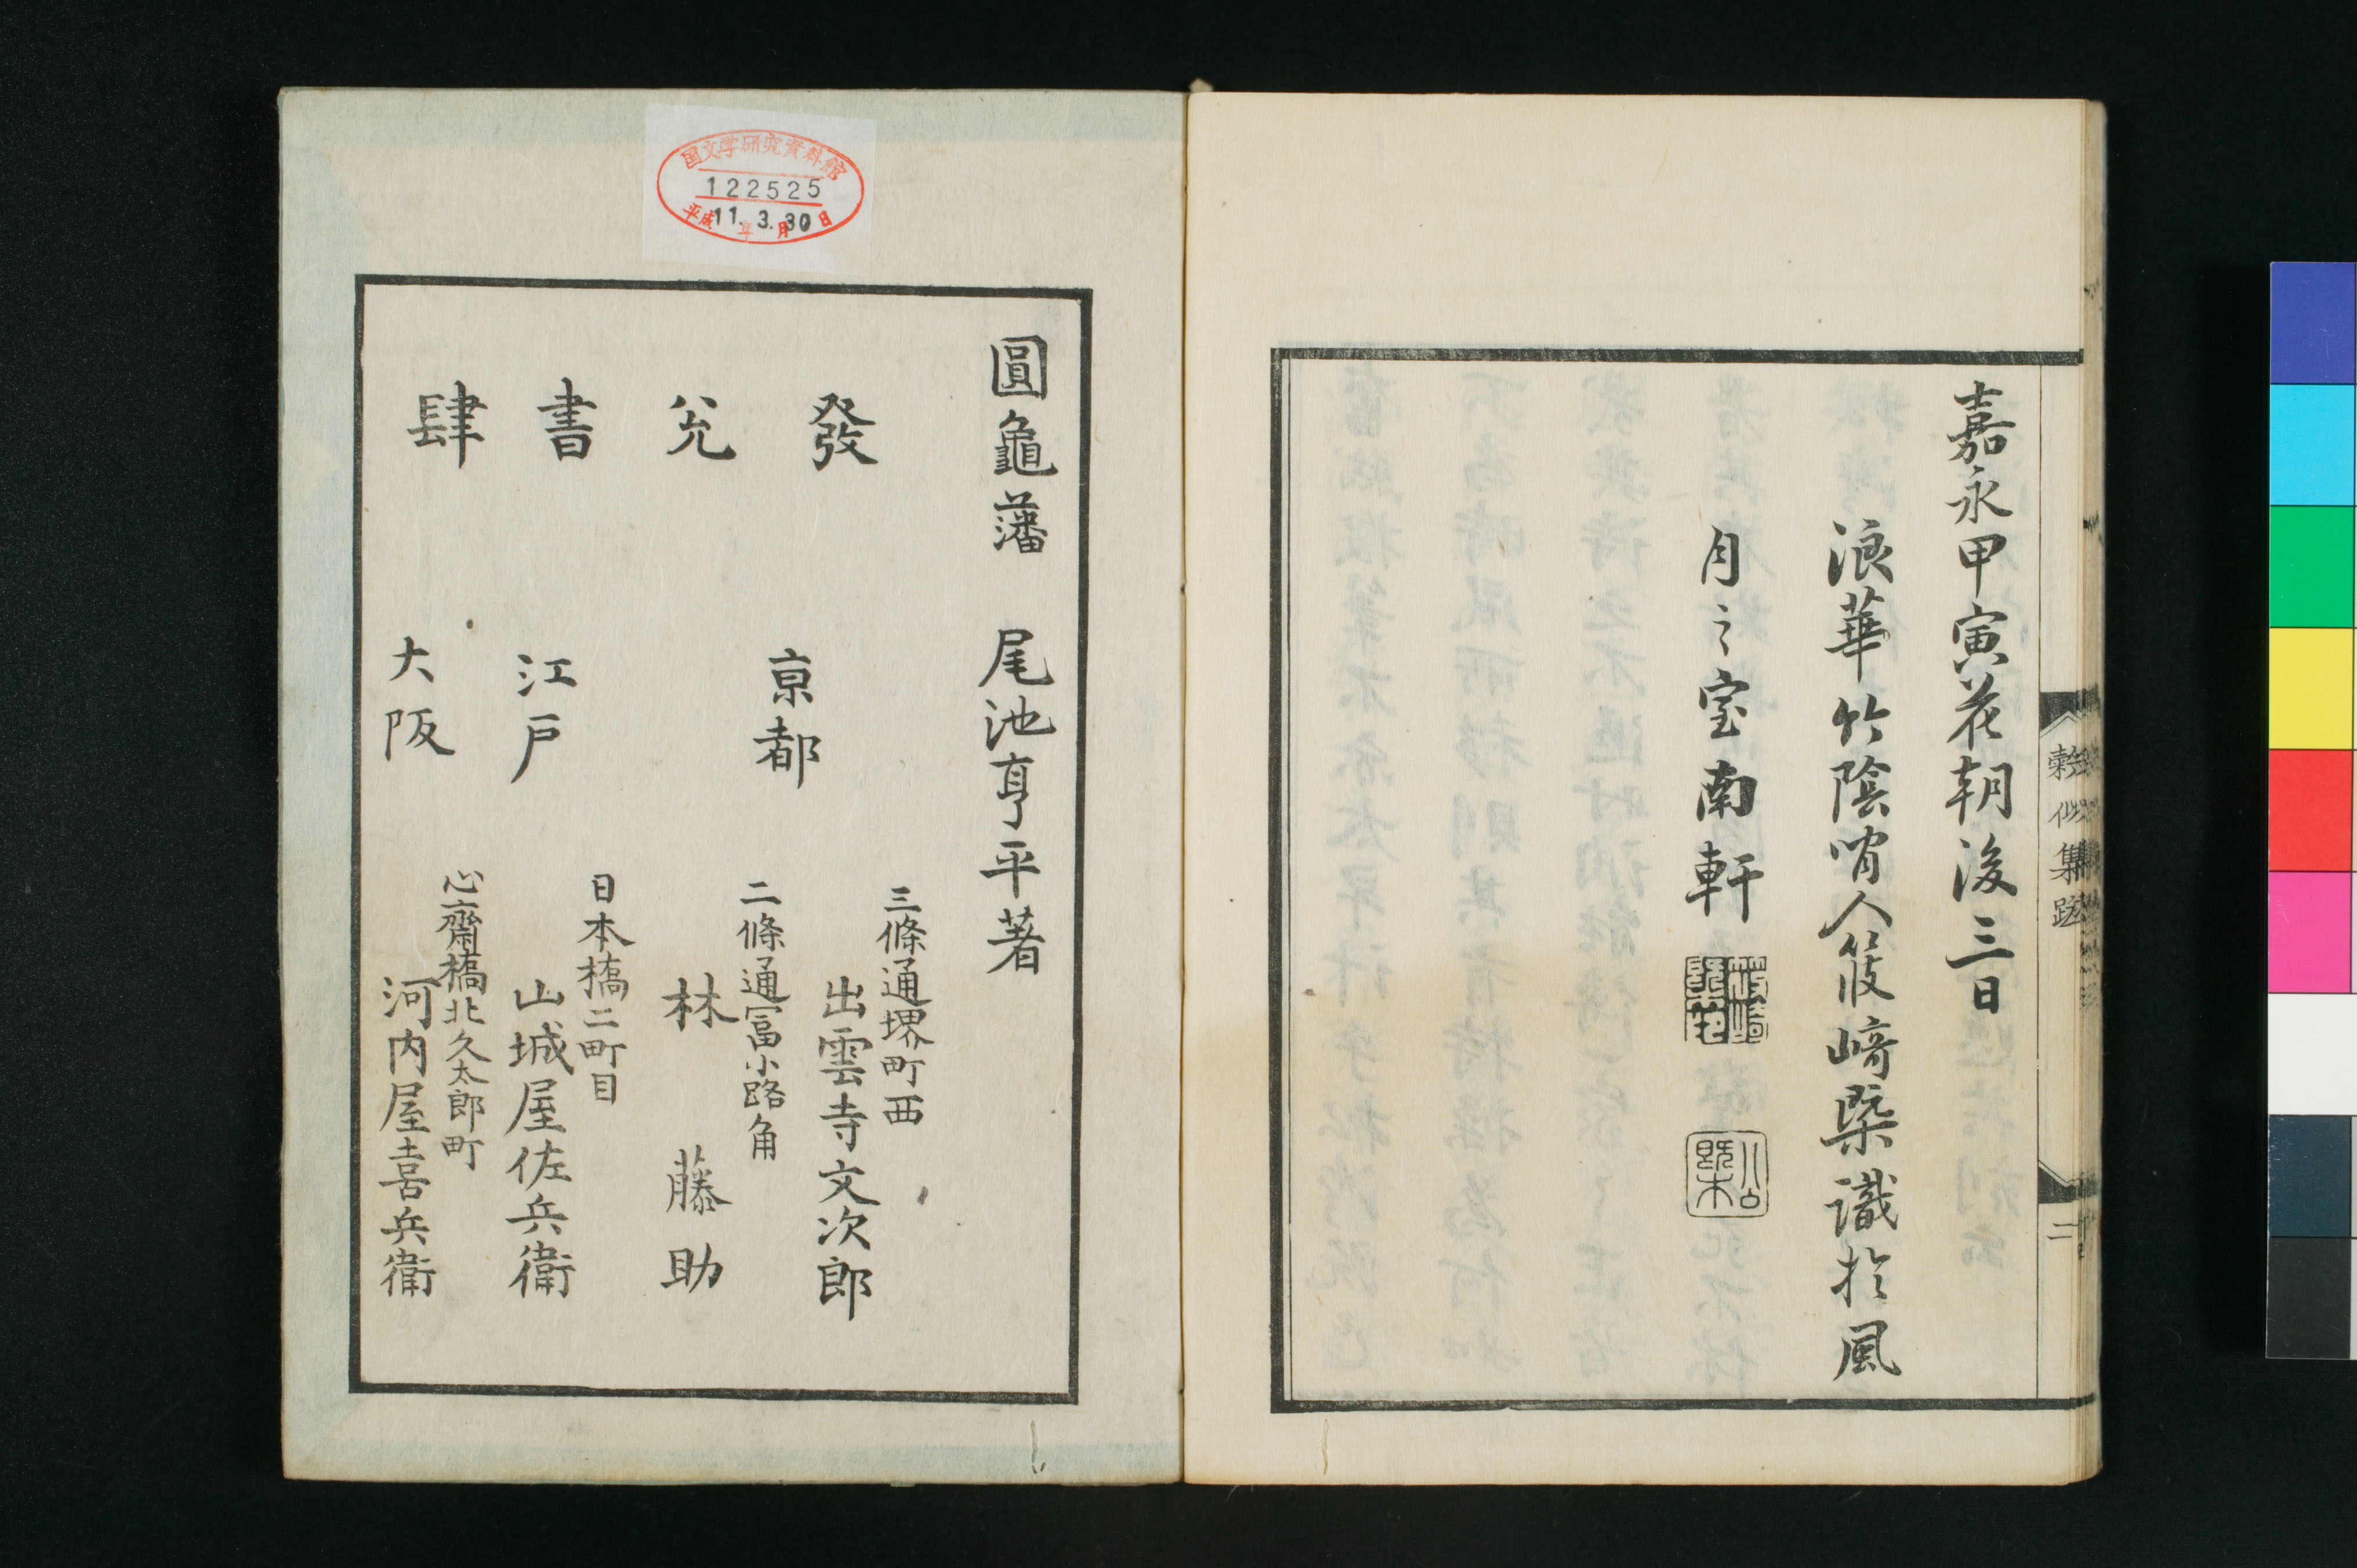 嘉永甲寅花朝後三日
浪華竹陰哨人筱﨑槩識於風
月之室南軒
穀似集跋
二
圓龜藩　尾池亨平著
發兌書肆
京都
三條通堺町西
出雲寺文次郎
二條通富小路角
林藤助
江戸
日本橋二町目
山城屋佐兵衛
大阪
心齋橋北久太郎町
河内屋喜兵衛
国文学研究資料館
122525
平成11年3.月30日